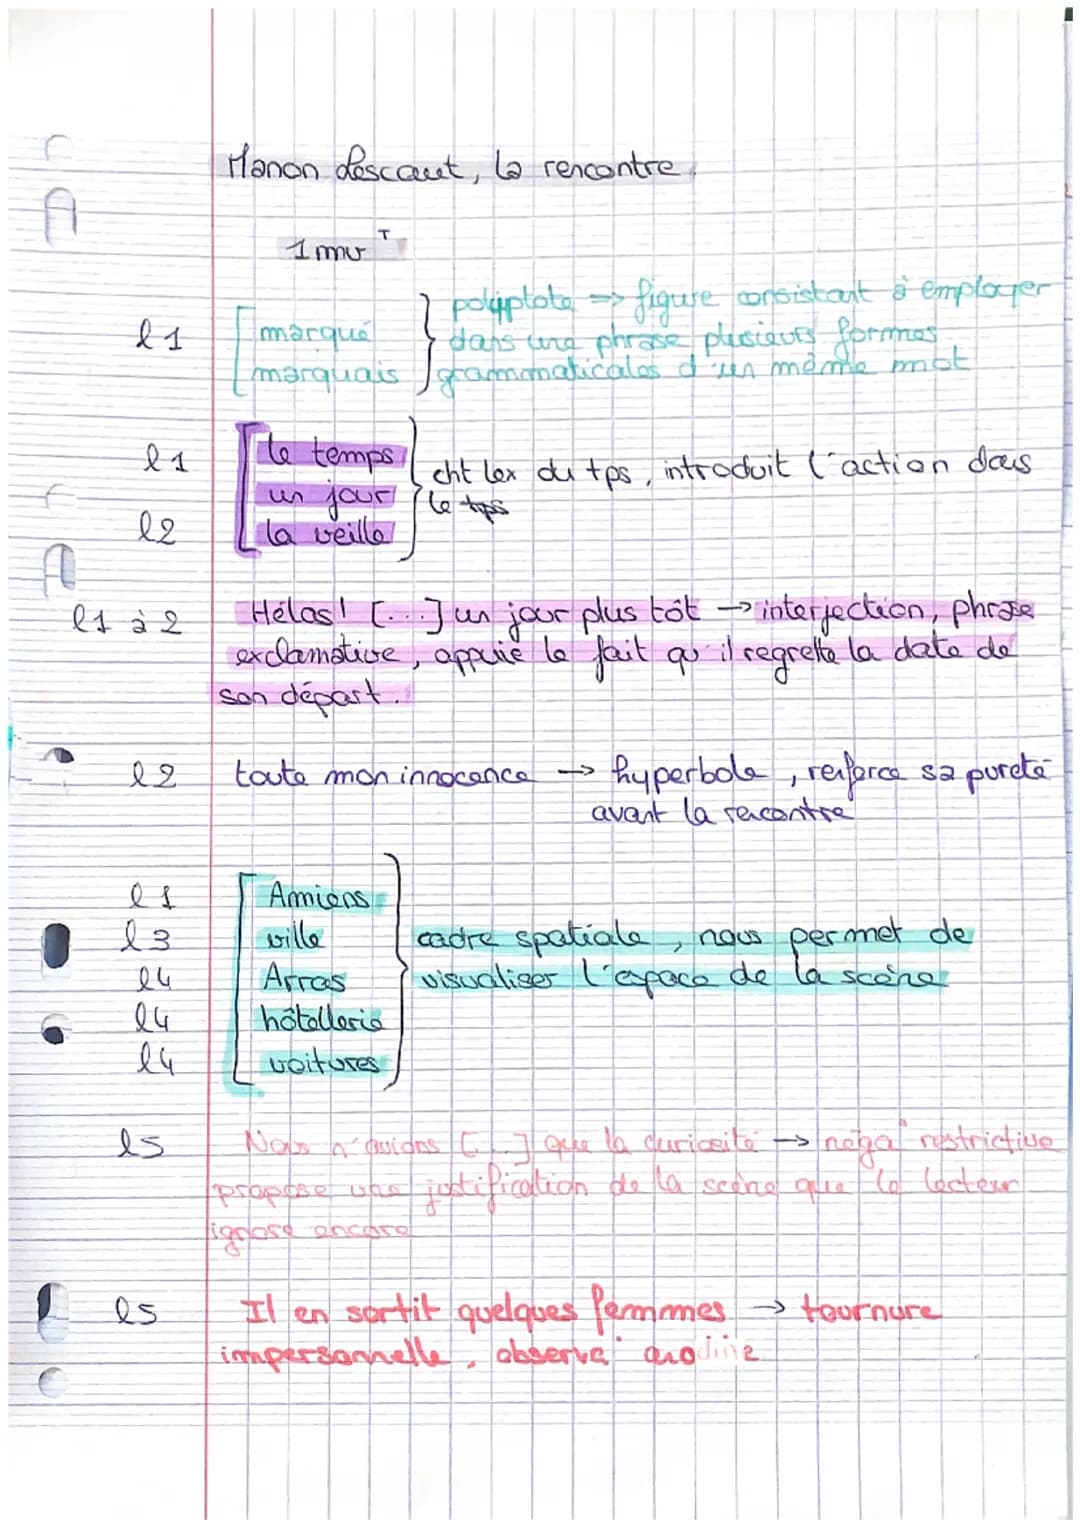 Manon Lescaut, la rencontre.
1 mvT
l1 marqué
marquais
polyptote => figure consistant à employer
dans une phrase plusieurs formes
grammaticales d'un même mot
l1 le temps
un jour
l2 la veille
cht lex du tps, introduit l'action dans
le tps
l1 à 2 Hélas! [...] un jour plus tôt → interjection, phrase
exclamative, appuie le fait qu'il regrette la date de
son départ.
l2 toute mon innocence → hyperbole, renforce sa pureté
avant la rencontre
l1 Amiens
l3 ville
l4 Arras
l4 hôtellerie
l4 voitures
cadre spatiale, nous permet de
visualiser l'espace de la scène
l5 Nous n'avions [...] que la curiosité → néga° restrictive
propose une justification de la scène que le lecteur
ignore encore
l5 Il en sortit quelques femmes → tournure
impersonnelle, observa° anodine